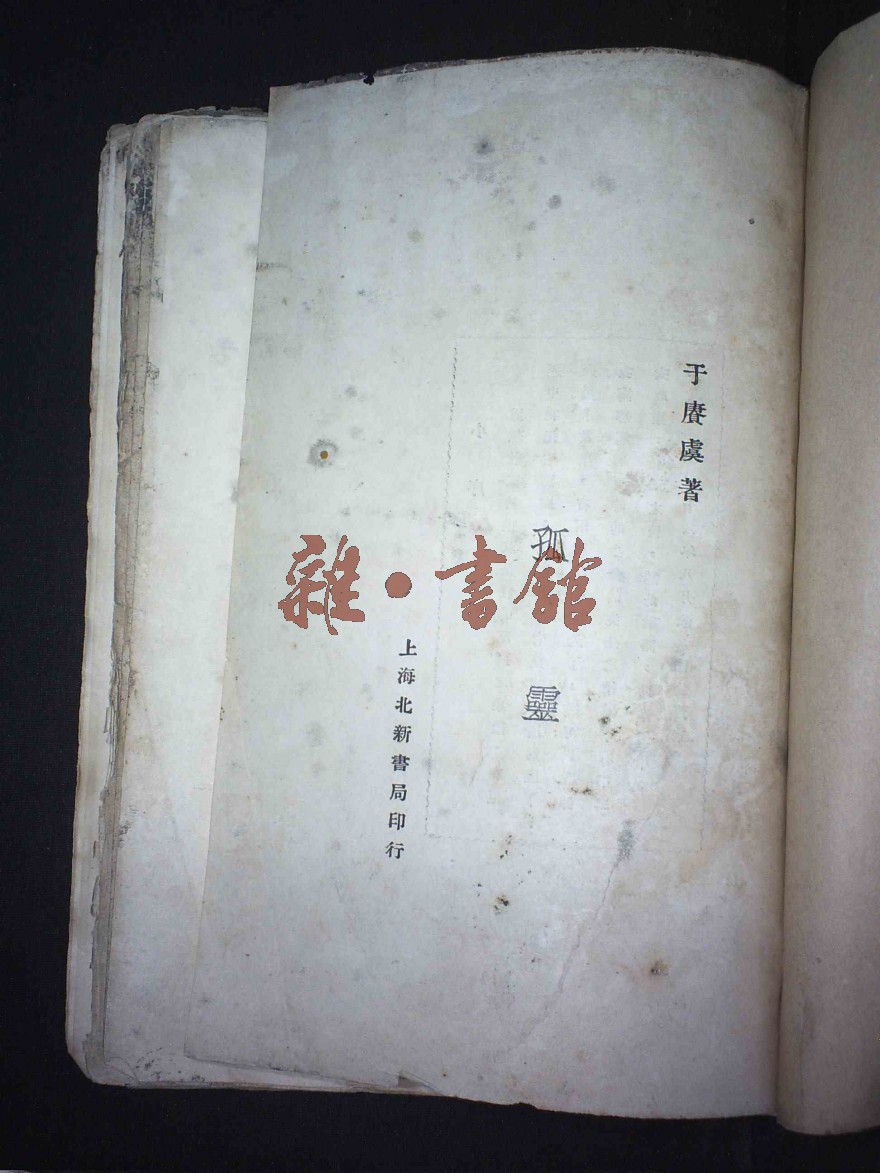 于賡虞著
孤靈
上海北新書局印行
雜•書館